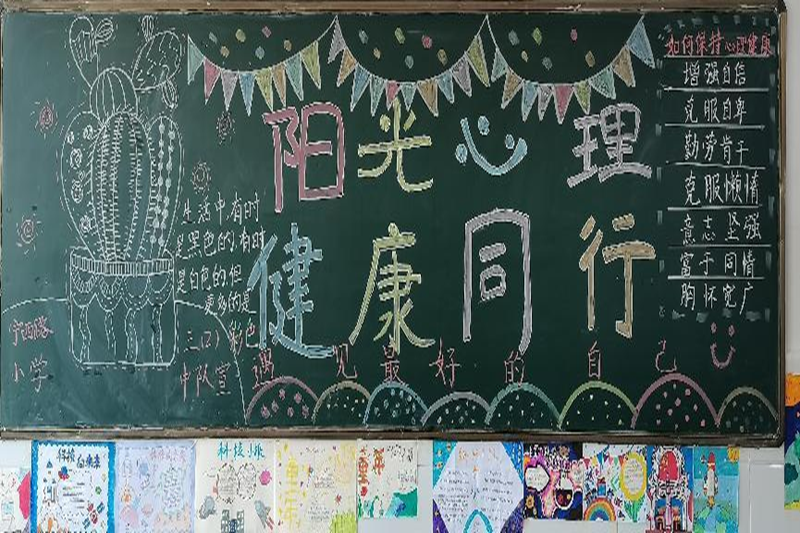 阳光心理
健康同行
遇见最好的自己
生活中有时
是黑色的,有时
是白色的,但
更多的是
彩色
三(2)
中队宣
小学
如何保持心理健康
增强自信
克服自卑
勤劳肯干
克服懒惰
意志坚强
富于同情
胸怀宽广
科技小报